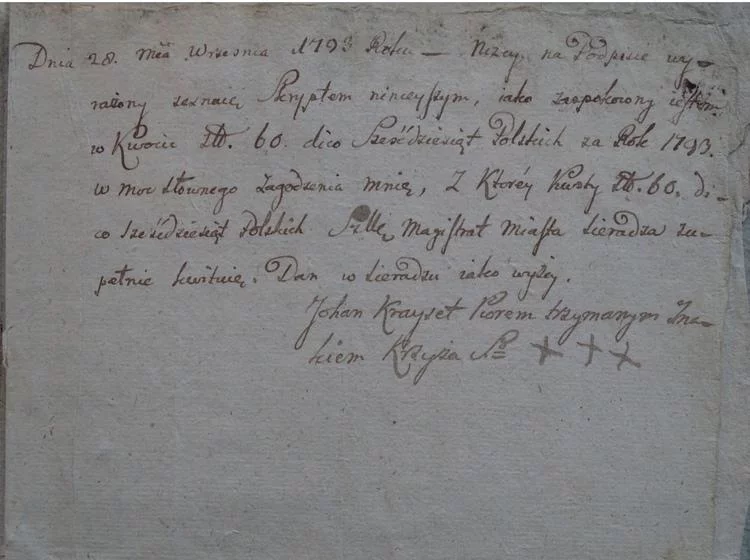 Dnia 28. Mca Wrzesnia 1793 Roku — Niżey na Podpisie wy=
rażony zeznaię Skryptem ninieyszym, iako zaspokoiony iestem
w Kwocie Zł. 60. dico Sześćdziesiąt Polskich za Rok 1793.
w moc słownego zagodzenia mnię, Z Ktorey Kwoty Zł. 60. di=
co sześćdziesiąt Polskich Szltę Magistrat Miasta Sieradza zu=
pełnie kwituię. Dan w Sieradzu iako wyżey.
Johan Krayset Piorem trzymanym Zna=
kiem Krzyża Sp + + +